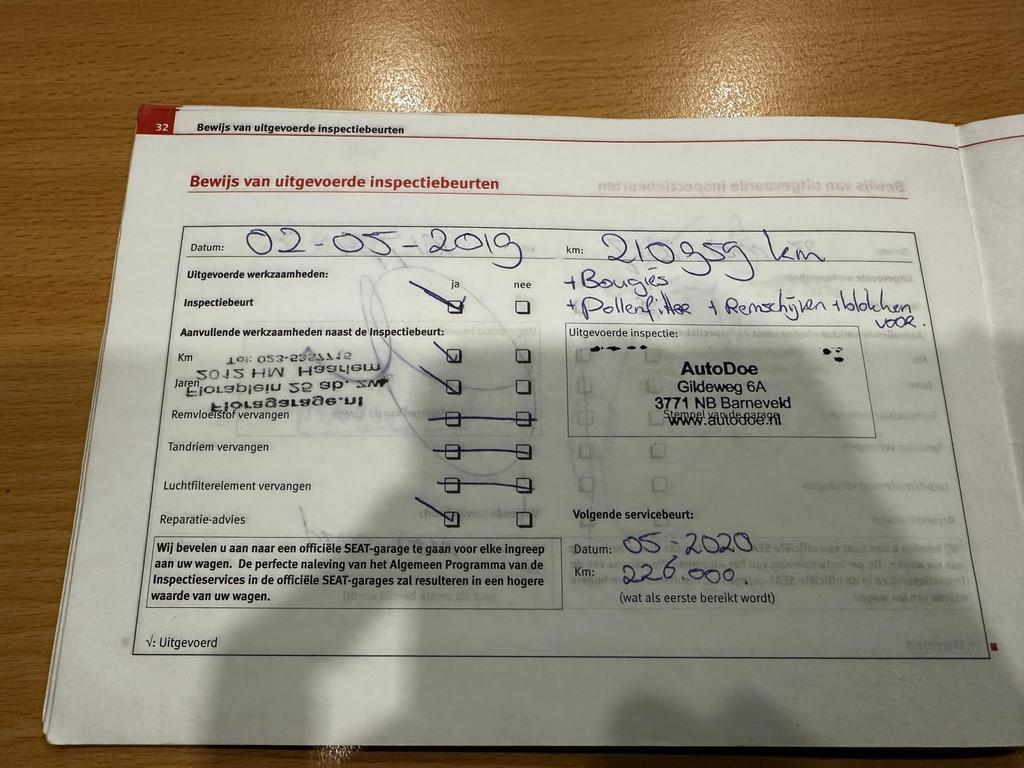 32 Bewijs van uitgevoerde inspectiebeurten
Bewijs van uitgevoerde inspectiebeurten
Datum: 02-05-2019 km: 210959 km
Uitgevoerde werkzaamheden: ja nee
+ Bougies
Inspectiebeurt
+ Pollenfilter + Remschijven + blokken
voor.
Aanvullende werkzaamheden naast de Inspectiebeurt:
Uitgevoerde inspectie:
Km
Tel: 023-5357715
2012 HW Haarlem
Jaren
Floraplein 25 ab. zw
Floragarage.nl
AutoDoe
Gildeweg 6A
3771 NB Barneveld
Stempel van de garage
www.autodoe.nl
Remvloeistof vervangen
Tandriem vervangen
Luchtfilterelement vervangen
Reparatie-advies
Volgende servicebeurt:
Datum: 05-2020
Km: 226.000.
(wat als eerste bereikt wordt)
Wij bevelen u aan naar een officiële SEAT-garage te gaan voor elke ingreep
aan uw wagen. De perfecte naleving van het Algemeen Programma van de
Inspectieservices in de officiële SEAT-garages zal resulteren in een hogere
waarde van uw wagen.
√: Uitgevoerd